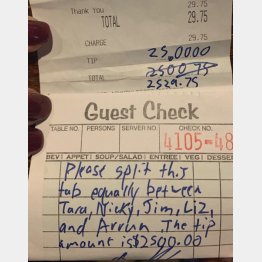 29.75
Thank You
TOTAL 29.75
CHARGE 29.75
25,0000
TIP 2500.75
TOTAL 2529.75
Guest Check
TABLE NO. PERSONS SERVER NO. CHECK NO.
4105-48
BEV APPET SOUP/SALAD ENTREE VEG DESSE
Please split this
tab equally between
Tara, Nicky, Jim, Liz,
and Arrun. The tip
amount is $2500.00